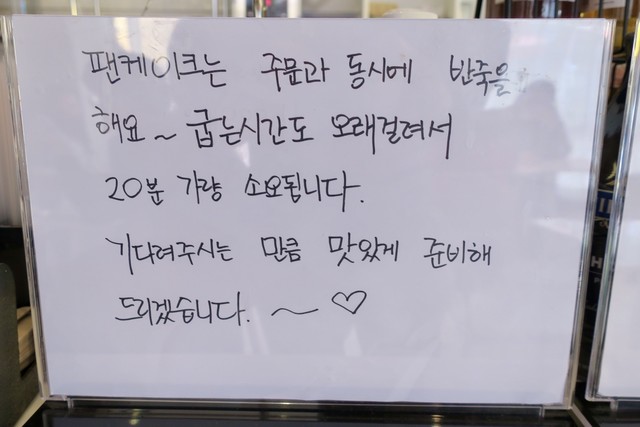 팬케이크는 주문과 동시에 반죽을
해요~ 굽는시간도 오래걸려서
20분 가량 소요됩니다.
기다려주시는 만큼 맛있게 준비해
드리겠습니다. ~ ♡